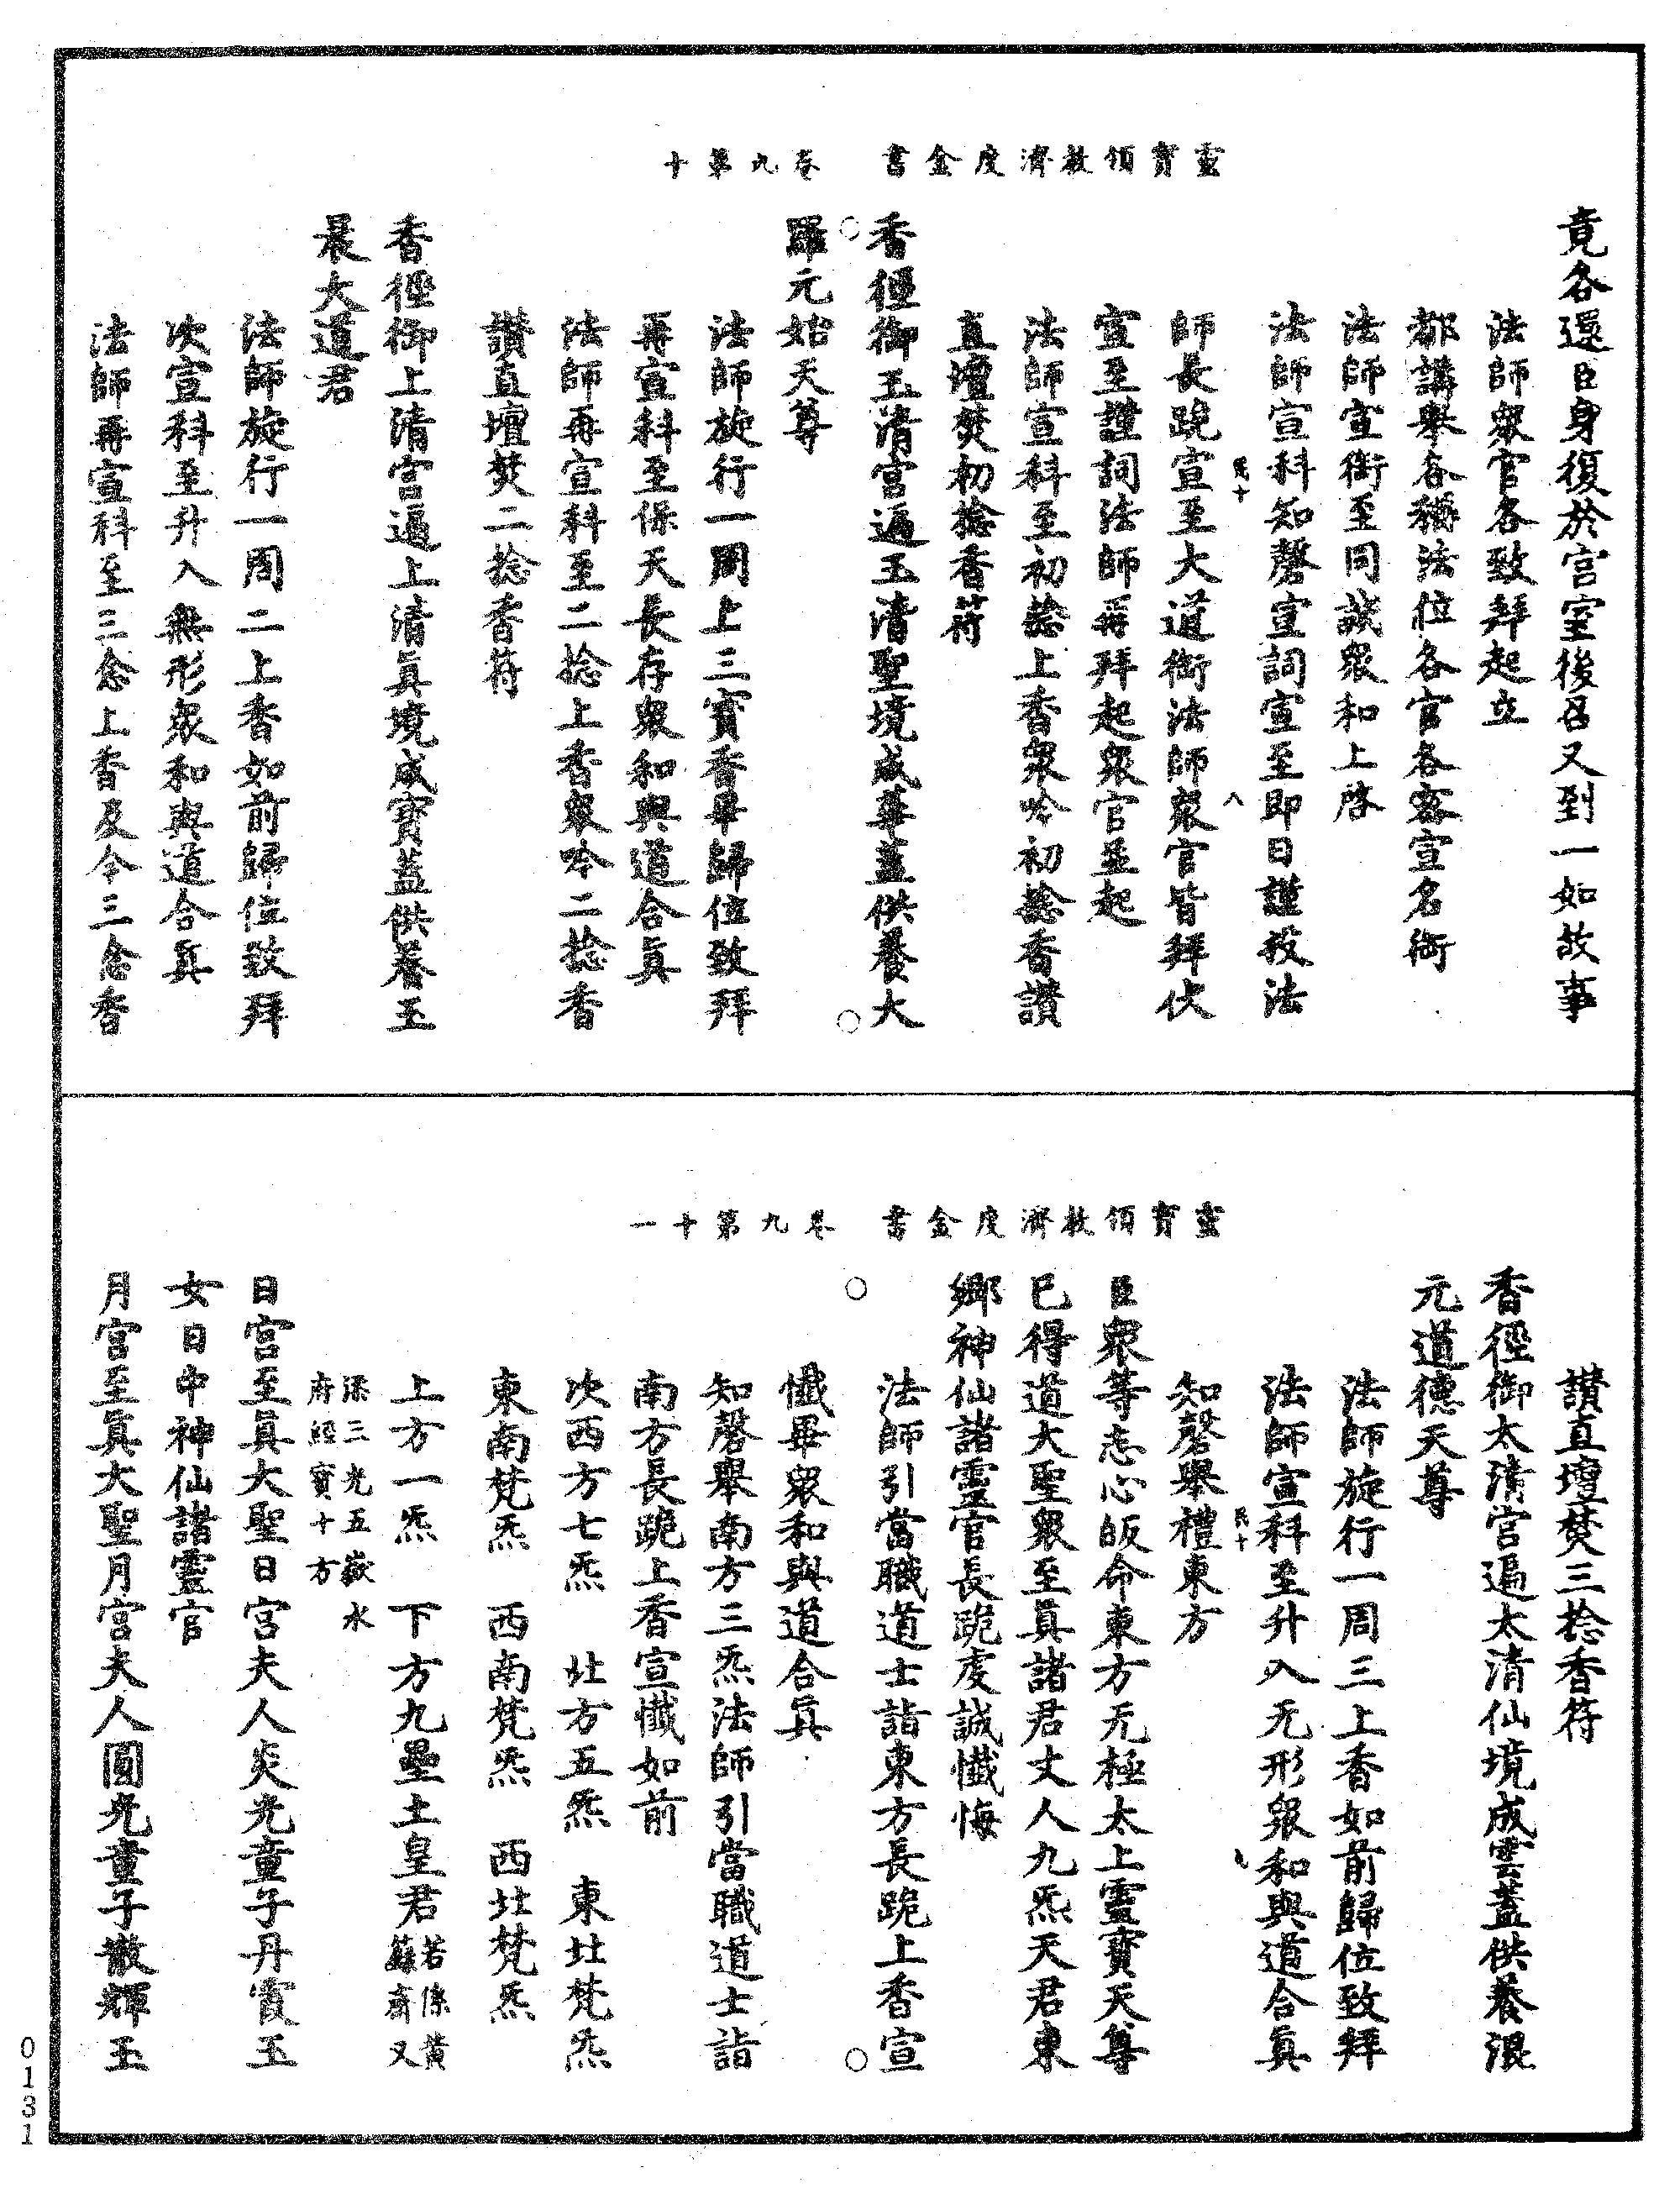 靈寶領教濟度金書　卷九第十
竟各還臣身復於宮室後召又到一如故事
法師衆官各致拜起立
都講舉各稱法位各官各寮宣名銜
法師宣銜至同誠衆和上啓
法師宣科知磬宣詞宣至即日謹投法
民十　八
師長跪宣至大道銜法師衆官皆拜伏
宣至謹詞法師再拜起衆官並起
法師宣科至初捻上香衆吟初捻香讃
直壇焚初捻香符
香徑御玉清宮遍玉清聖境成華蓋供養大
羅元始天尊
法師旋行一周上三寶香畢歸位致拜
再宣科至保天長存衆和與道合眞
法師再宣科至二捻上香衆吟二捻香
讃直壇焚二捻香符
香徑御上清宮遍上清眞境成寶蓋供養玉
晨大道君
法師旋行一周二上香如前歸位致拜
次宣科至升入無形衆和與道合眞
法師再宣科至三念上香及今三念香
靈寶領教濟度金書　卷九第十一
讃直壇焚三捻香符
香徑御太清宮遍太清仙境成雲蓋供養混
元道德天尊
法師旋行一周三上香如前歸位致拜
法師宣科至升入无形衆和與道合眞
民十
知磬舉禮東方
臣衆等志心皈命東方无極太上靈寶天尊
已得道大聖衆至眞諸君丈人九炁天君東
鄉神仙諸靈官長跪虔誠懺悔
法師引當職道士詣東方長跪上香宣
懺畢衆和與道合眞
知磬舉南方三炁法師引當職道士詣
南方長跪上香宣懺如前
次西方七炁　北方五炁　東北梵炁
東南梵炁　西南梵炁　西北梵炁
上方一炁　下方九壘土皇君若係黃
籙齋又
添三光五嶽水
府經寶十方
日宮至眞大聖日宮夫人炎光童子丹霞玉
女日中神仙諸靈官
月宮至眞大聖月宮夫人圓光童子散輝玉
0131